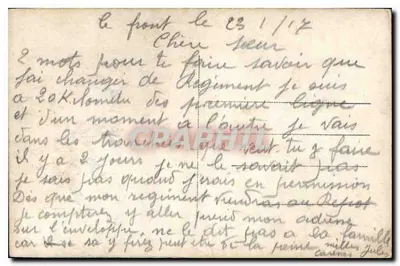 le front le 23 1/17
Chère sœur
2 mots pour te faire savoir que
j'ai changer de Regiment je suis
a 20 Kilomètre des première ligne
et d'un moment a l'autre je vais
dans les tranchées que veut tu y faire
il y a 2 jours je ne le savait pas
je sais pas quand j'irais en permission
Dès que mon regiment viendras au Repost
je compterez y aller prend mon adresse
sur l'enveloppe, ne le dit pas a la famille
car il se sa y ferez peut être de la peine milles
caresses Jules